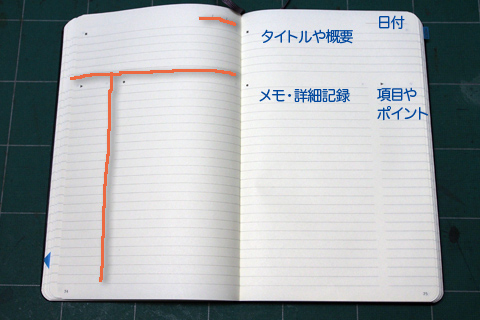 日付
タイトルや概要
メモ・詳細記録
項目や
ポイント